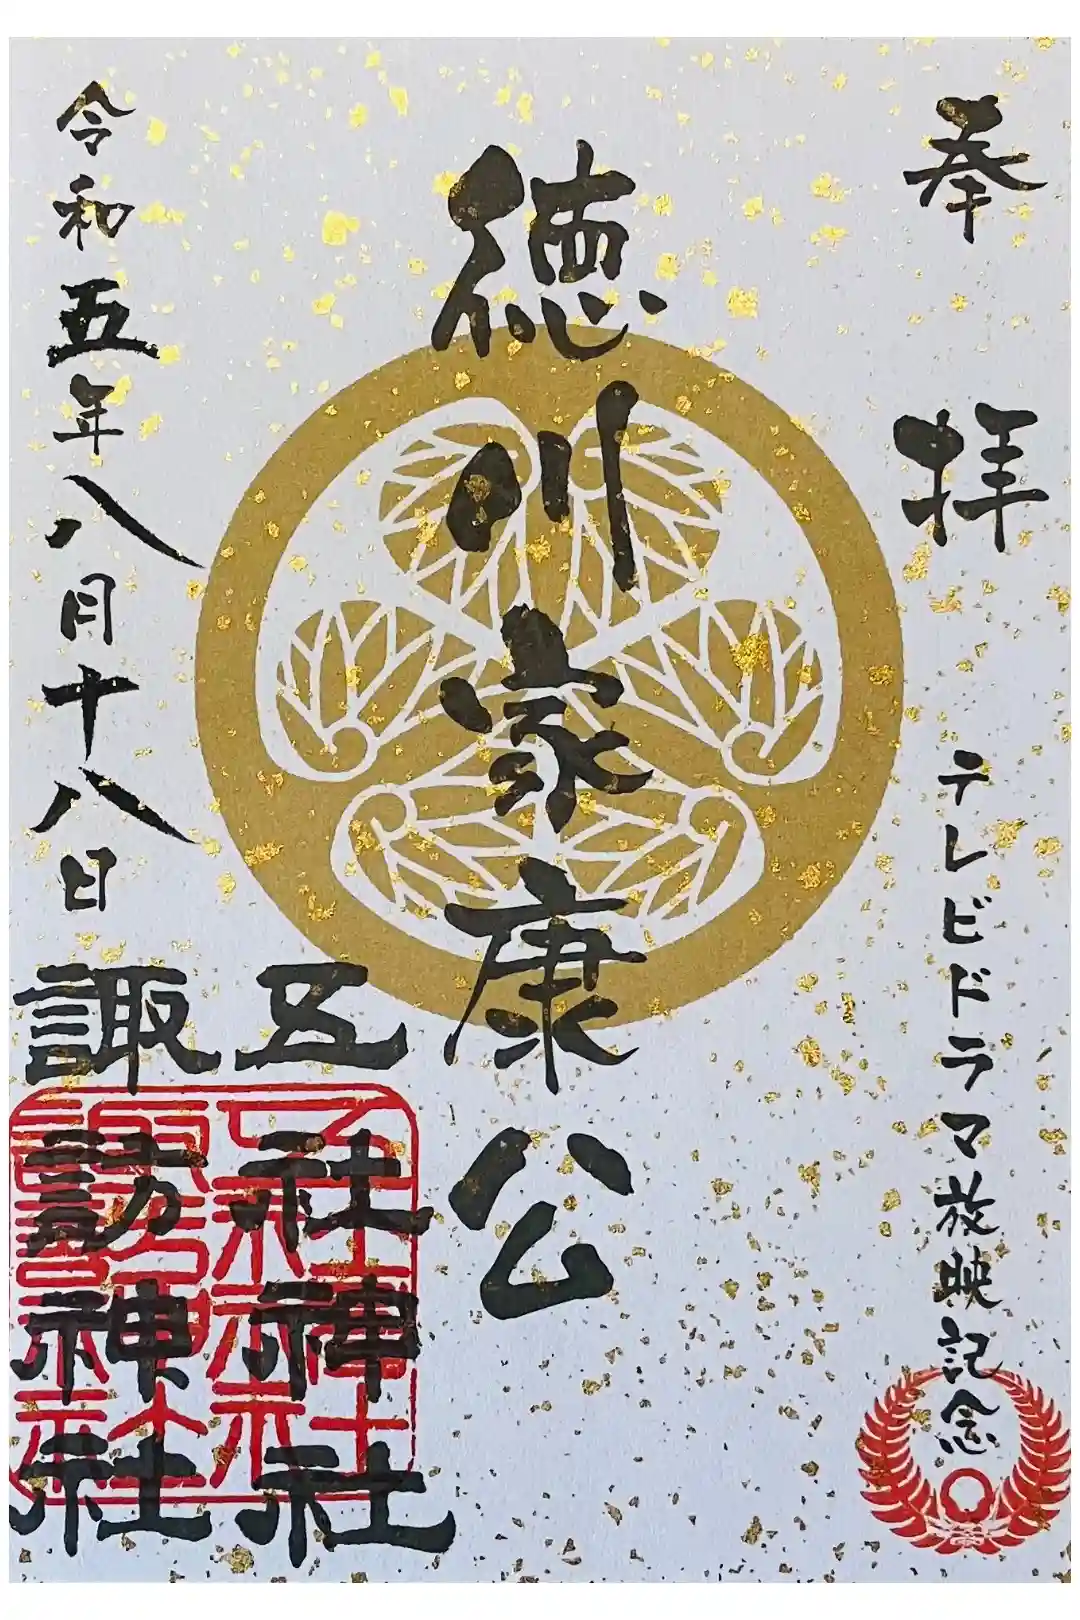 奉拝
テレビドラマ放映記念
徳川家康公
五社神社
諏訪神社
令和五年八月十八日
五社神社
諏訪神社